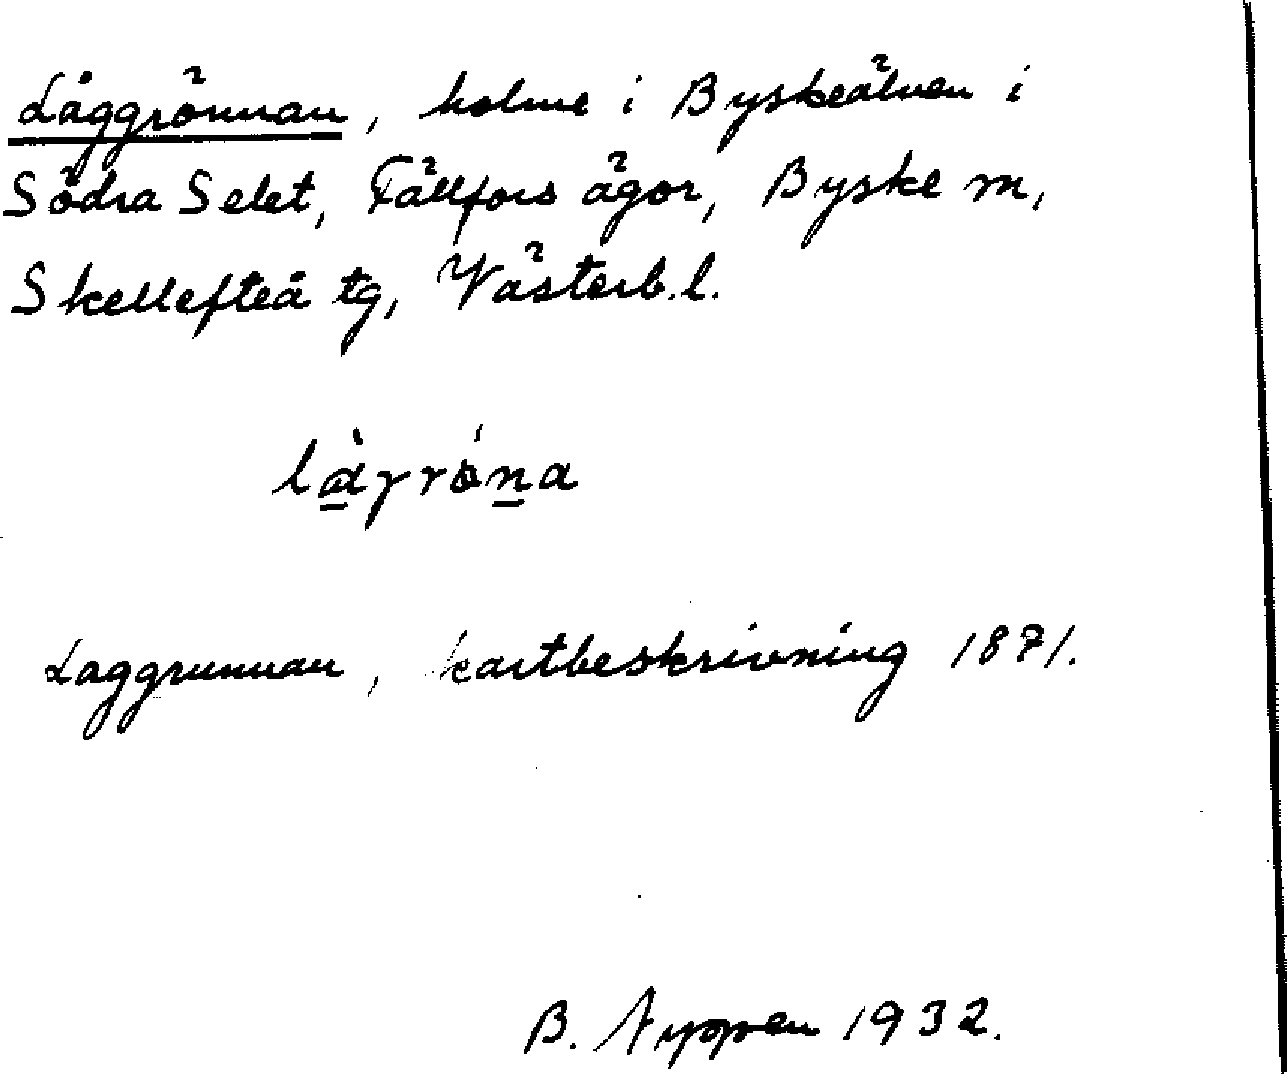 Låggrönnan, holme i Byskeälven i
Södra Selet, Fällfors ägor, Byske sn,
Skellefteå tg, Västerb. l.
lågröna
Laggrunnan, kartbeskrivning 1871.
B. Nyppen 1932.